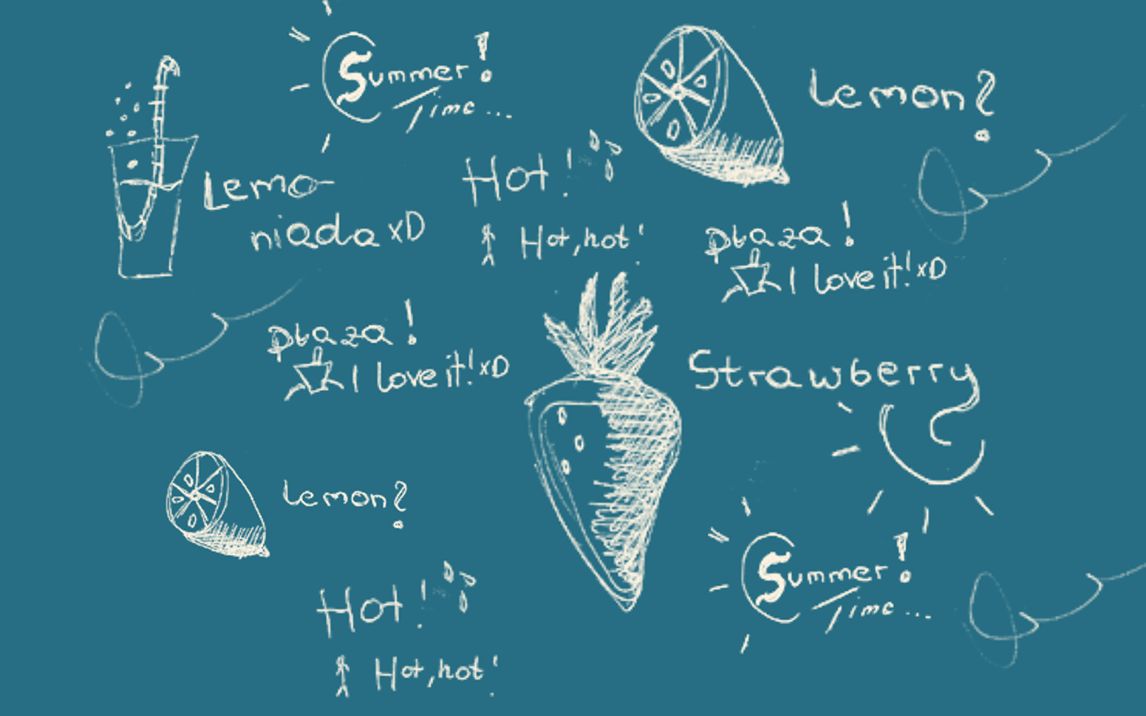 Summer!
Time...
Lemon?
Lemo-
niada xD
Hot!
Hot, hot!
plaza!
I love it! xD
plaza!
I love it! xD
Strawberry
Lemon?
Summer!
Time...
Hot!
Hot, hot!